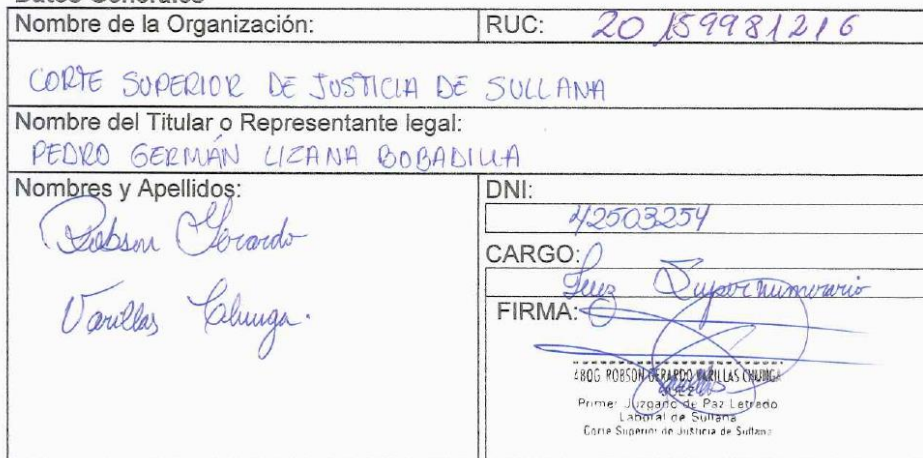 Datos Generales
Nombre de la Organización:
RUC: 20159981216
CORTE SUPERIOR DE JUSTICIA DE SULLANA
Nombre del Titular o Representante legal:
PEDRO GERMÁN LIZANA BOBADILLA
Nombres y Apellidos:
Robson Gerardo
Varillas Chunga.
DNI:
42503254
CARGO:
Juez Supernumerario
FIRMA:
ABOG. ROBSON GERARDO VARILLAS CHUNGA
JUEZ
Primer Juzgado de Paz Letrado
Laboral de Sullana
Corte Superior de Justicia de Sullana